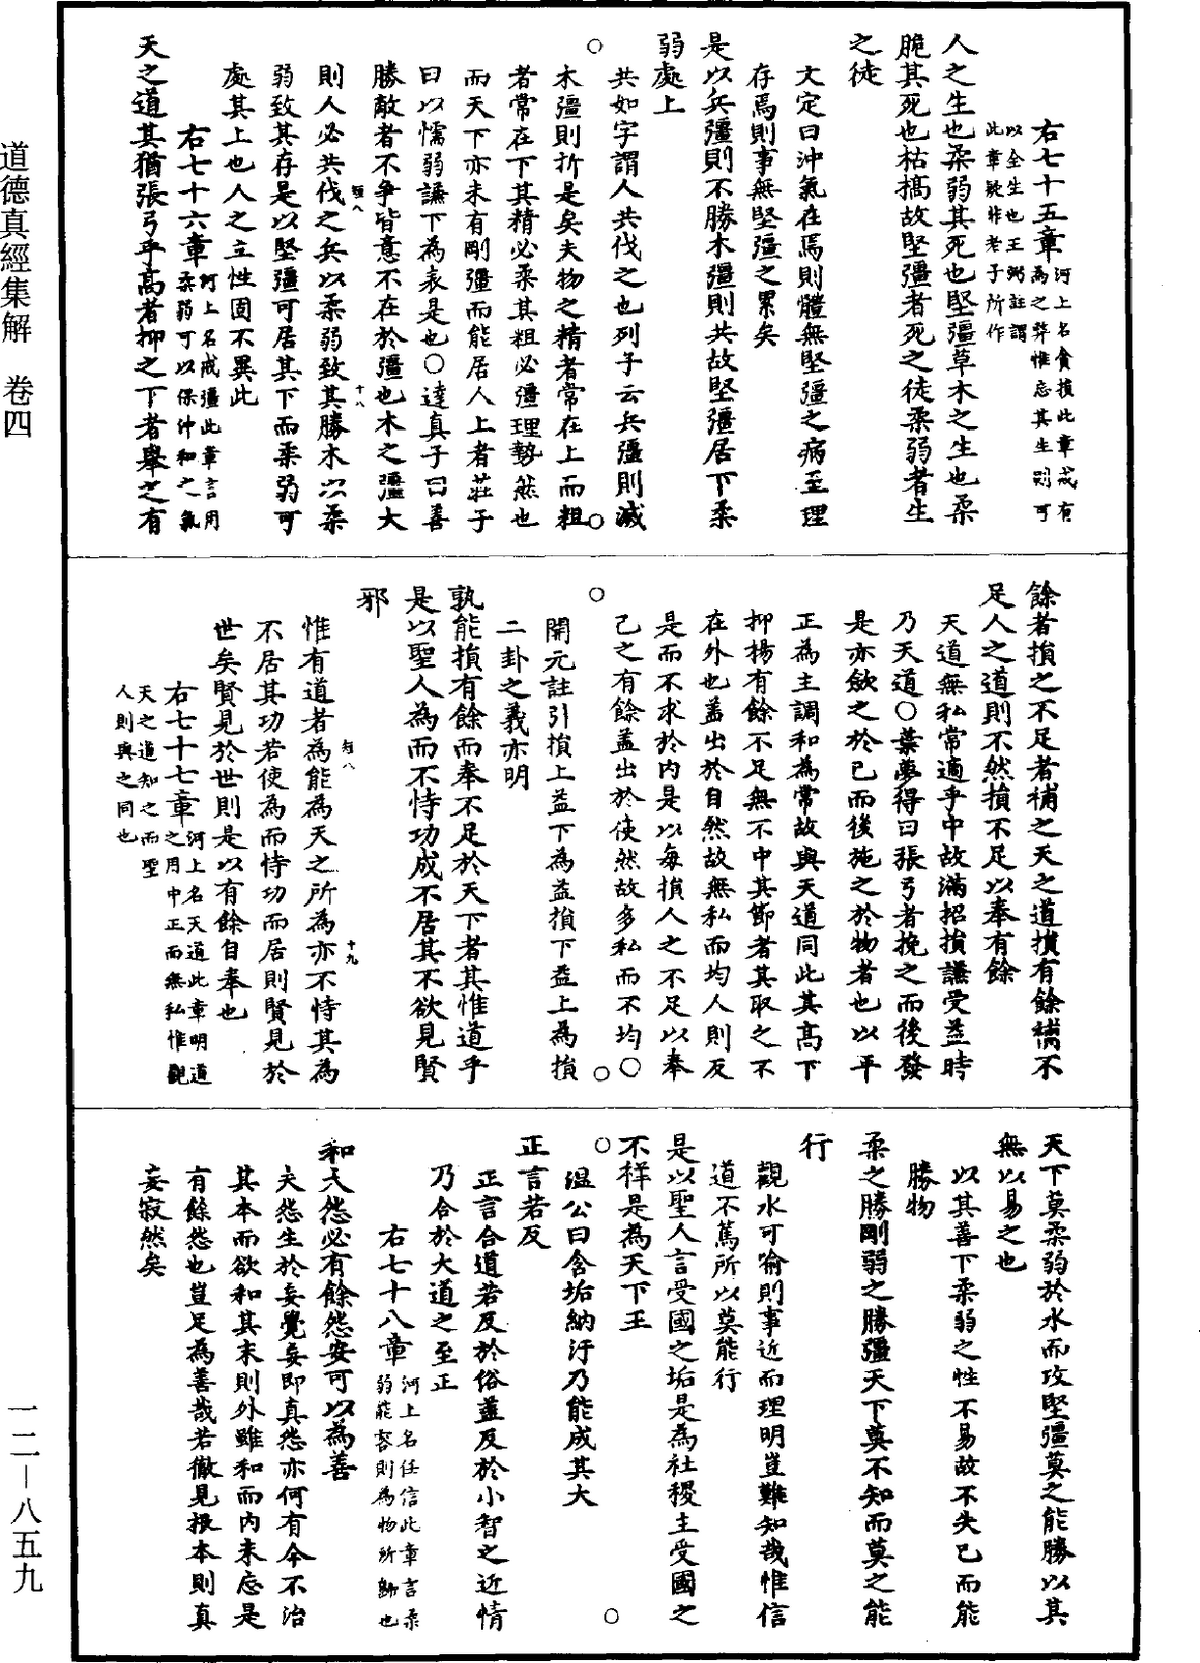 右七十五章河上名貪損此章戒有
為之弊惟忘其生則可
以全生也王弼註謂
此章疑非老子所作
人之生也柔弱其死也堅彊草木之生也柔
脆其死也枯槁故堅彊者死之徒柔弱者生
之徒
文定曰沖氣在焉則體無堅彊之病至理
存焉則事無堅彊之累矣
是以兵彊則不勝木彊則共故堅彊居下柔
弱處上
共如字謂人共伐之也列子云兵彊則滅
木彊則折是矣夫物之精者常在上而粗
者常在下其精必柔其粗必彊理勢然也
而天下亦未有剛彊而能居人上者莊子
曰以懦弱謙下為表是也○達真子曰善
勝敵者不爭皆意不在於彊也木之彊大
則人必共伐之兵以柔弱致其勝木以柔
弱致其存是以堅彊可居其下而柔弱可
處其上也人之立性固不異此
右七十六章河上名戒彊此章言用
柔弱可以保沖和之氣
天之道其猶張弓乎高者抑之下者舉之有
餘者損之不足者補之天之道損有餘補不
足人之道則不然損不足以奉有餘
天道無私常適乎中故滿招損謙受益時
乃天道○葉夢得曰張弓者挽之而後發
是亦斂之於己而後施之於物者也以平
正為主調和為常故與天道同此其高下
抑揚有餘不足無不中其節者其取之不
在外也蓋出於自然故無私而均人則反
是而不求於內是以每損人之不足以奉
己之有餘蓋出於使然故多私而不均○
開元註引損上益下為益損下益上為損
二卦之義亦明
孰能損有餘而奉不足於天下者其惟道乎
是以聖人為而不恃功成不居其不欲見賢
邪
惟有道者為能為天之所為亦不恃其為
不居其功若使為而恃功而居則賢見於
世矣賢見於世則是以有餘自奉也
右七十七章河上名天道此章明道
之用中正而無私惟觀
天之道知之而聖
人則與之同也
天下莫柔弱於水而攻堅彊莫之能勝以其
無以易之也
以其善下柔弱之性不易故不失己而能
勝物
柔之勝剛弱之勝彊天下莫不知而莫之能
行
觀水可喻則事近而理明豈難知哉惟信
道不篤所以莫能行
是以聖人言受國之垢是為社稷主受國之
不祥是為天下王
溫公曰含垢納汙乃能成其大
正言若反
正言合道若反於俗蓋反於小智之近情
乃合於大道之至正
右七十八章河上名任信此章言柔
弱能容則為物所歸也
和大怨必有餘怨安可以為善
夫怨生於妄覺妄即真怨亦何有今不治
其本而欲和其末則外雖和而內未忘是
有餘怨也豈足為善哉若徹見根本則真
妄寂然矣
道德真經集解　卷四
一二—八五九